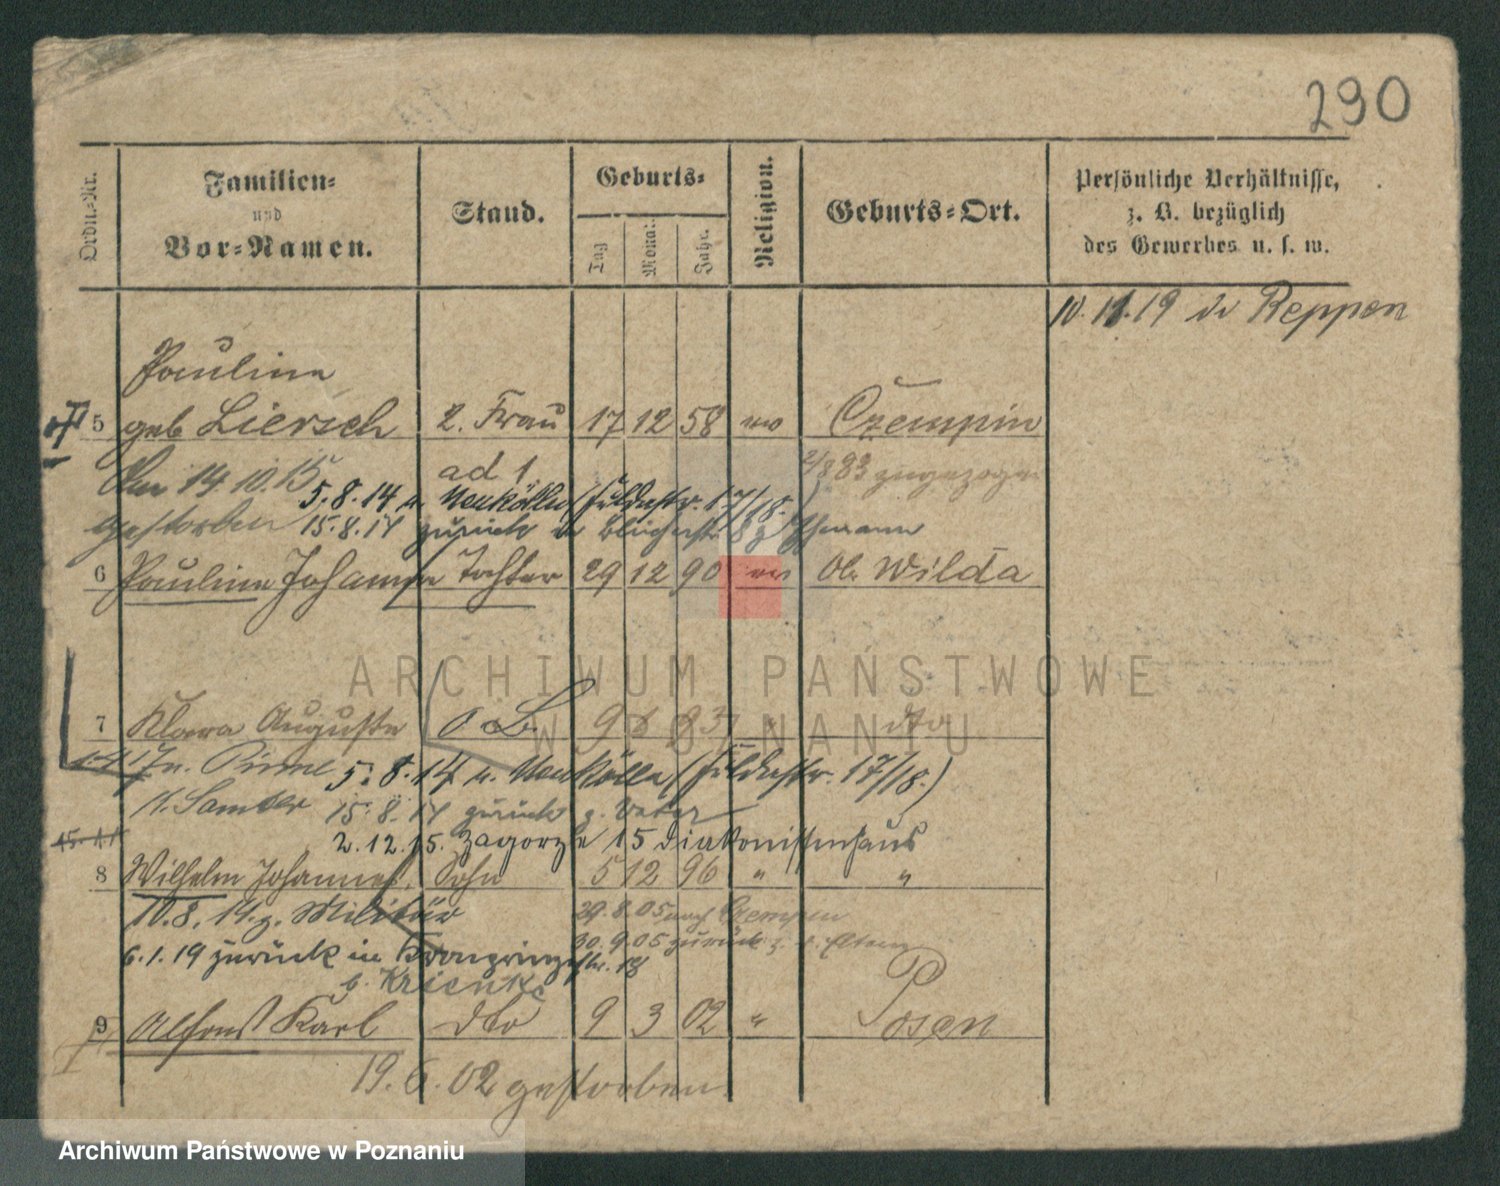 290
Ordn.-Nr.
Familien-
und
Vor-Namen.
Stand.
Geburts-
Tag
Monat
Jahr
Religion.
Geburts-Ort.
Persönliche Verhältnisse,
z. B. bezüglich
des Gewerbes u. s. w.
10. 11. 19 in Reppen
Pauline
5 geb Liersch 2. Frau 17 12 58 Czempin
ad 1.
Am 14. 10. 15
gestorben
2/8 93 zugezogen
5. 8. 14 n. Neukölln (Fuldastr. 17/18.)
15. 8. 14 zurück Blücherstr. 8 z Ehemann
6 Pauline Johanna Tochter 29 12 90 Ob. Wilda
7 Klara Auguste 9 93 dto
5. 8. 14 n. Neukölln (Fuldastr. 17/18.)
K. Samter 15. 8. 14 zurück z. Vater
2. 12. 15. Zagorze 15 Diakonissenhaus
8 Wilhelm Johannes Sohn 5 12 96 " "
10. 8. 14. z. Militär 29. 8. 05 nach Czempin
6. 1. 19 zurück in Kronprinzenstr. 18 30. 9. 05 zurück z. d. Eltern
b. Krienke
9 Alfons Karl dto 9 3 02 " Posen
19. 6. 02 gestorben
ARCHIWUM PAŃSTWOWE
W POZNANIU
Archiwum Państwowe w Poznaniu